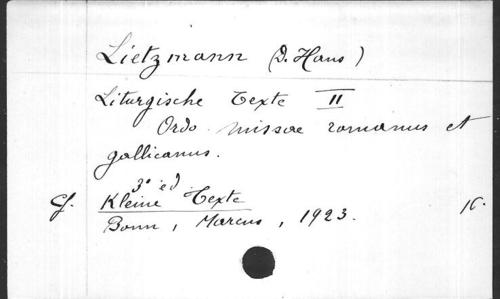 Lietzmann (D. Hans)
Liturgische Texte II
Ordo missae romanus et
gallicanus.
3º éd.
Cf. Kleine Texte 16.
Bonn, Marcus, 1923.